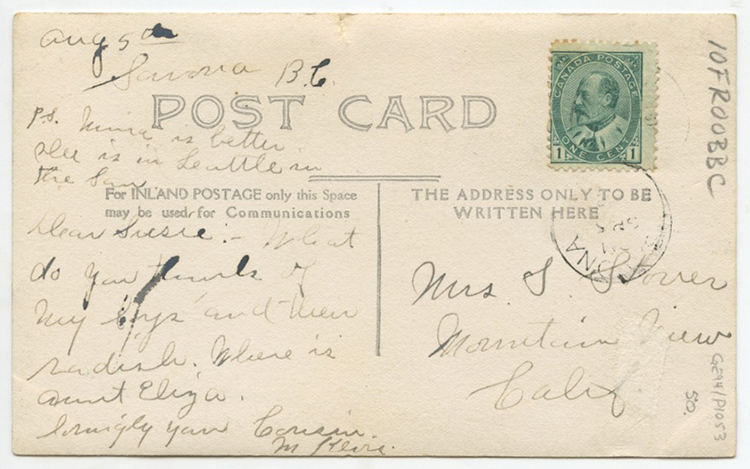 Aug 5th
Savona B.C.
P.S. Mina is better
she is in Seattle in
the San
POST CARD
CANADA POSTAGE
ONE CENT
1 1
For INLAND POSTAGE only this Space
may be used for Communications
THE ADDRESS ONLY TO BE
WRITTEN HERE
Dear Susie:- What
do you think of
my boys and their
radish. Where is
aunt Eliza.
lovingly your Cousin
M
Mrs. S. Stover
Mountain View
Calif
10FROOBBC
G294/P1053
50.